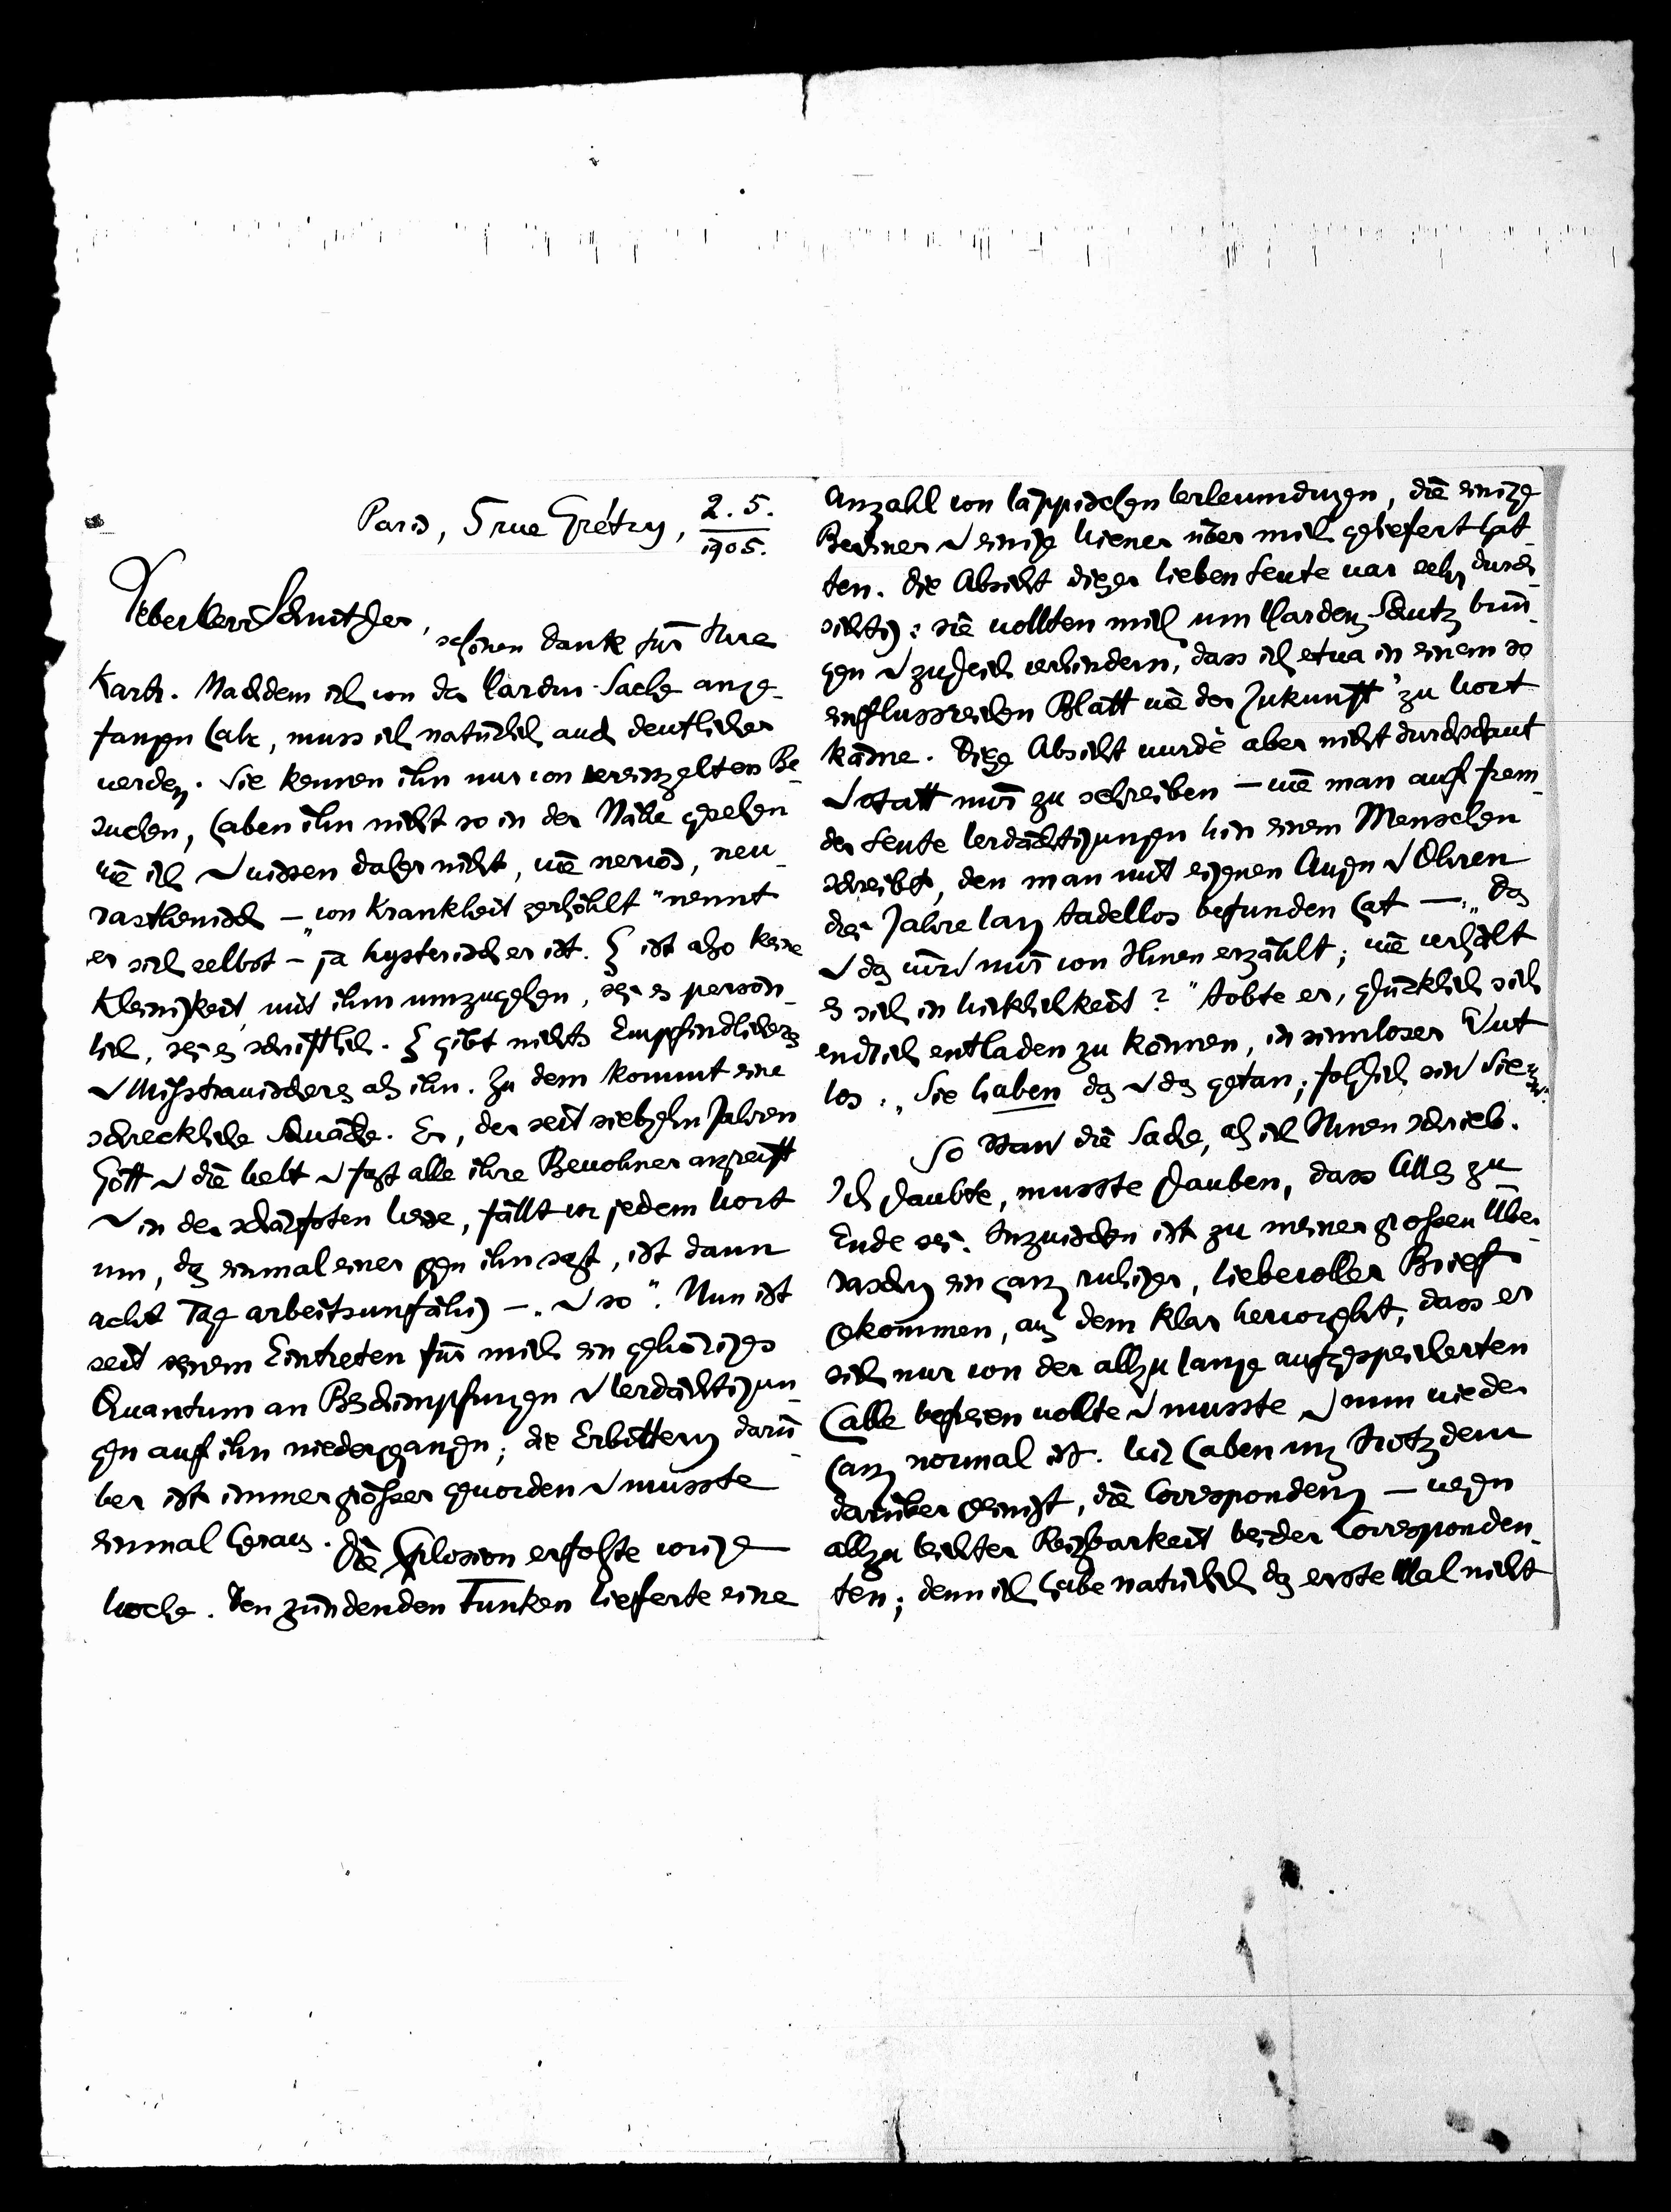 Paris, 5 rue Grétry, 2. 5. 1905.
Lieber Herr Schnitzler,
schönen Dank für Ihre
Karte. Nachdem ich von der Harden-Sache ange-
fangen habe, muss ich natürlich auch deutlicher
werden. Sie kennen ihn nur von vereinzelten Be-
suchen, haben ihn nicht so in der Nähe gesehen
wie ich u wissen daher nicht, wie nervös, neu-
rasthenisch – „von Krankheit zerhöhlt" nennt
er sich selbst – ja hysterisch er ist. Es ist also keine
Kleinigkeit, mit ihm umzugehen, sei es persön-
lich, sei es schriftlich. Es gibt nichts Empfindlicheres
u Misstrauischeres als ihn. Zu dem kommt eine
schreckliche Schwäche. Er, der seit siebzehn Jahren
Gott u die Welt u fast alle ihre Bewohner angreift
u in der schärfsten Weise, fällt vor jedem Wort
um, das einmal einer gegen ihn sagt, ist dann
acht Tage arbeitsunfähig –. „u so". Nun ist
seit seinem Eintreten für mich ein gehöriges
Quantum an Beschimpfungen u Verdächtigun-
gen auf ihn niedergegangen; die Erbitterung darü-
ber ist immer grösser geworden u musste
einmal heraus. Die Explosion erfolgte vorige
Woche. Den zündenden Funken lieferte eine
Anzahl von läppischen Verleumdungen, die einige
Berliner u einige Wiener über mich geliefert hat-
ten. Die Absicht dieser lieben Leute war sehr durch-
sichtig: sie wollten mich um Hardens Schutz brin-
gen u zugleich verhindern, dass ich etwa in einem so
einflussreichen Blatt wie der „Zukunft" zu Wort
käme. Diese Absicht wurde aber nicht durchschaut
u statt mir zu schreiben – wie man auf frem-
der Leute Verdächtigungen hin einem Menschen
schreibt, den man mit eigenen Augen u Ohren
drei Jahre lang tadellos befunden hat –: „Das
u das wird mir von Ihnen erzählt; wie verhält
es sich in Wirklichkeit?" tobte er, glücklich sich
endlich entladen zu können, in sinnloser Wut
los: „Sie haben das u das getan; folglich sind Sie
So stand die Sache, als ich Ihnen schrieb.
Ich glaubte, musste glauben, dass Alles zu
Ende sei. Inzwischen ist zu meiner grossen Über-
raschung ein ganz ruhiger, liebevoller Brief
gekommen, aus dem klar hervorgeht, dass er
sich nur von der allzu lange aufgespeicherten
Galle befreien wollte u musste u nun wieder
ganz normal ist. Wir haben uns trotzdem
darüber geeinigt, die Correspondenz – wegen
allzu leichter Reizbarkeit beider Corresponden-
ten; denn ich habe natürlich das erste Mal nicht